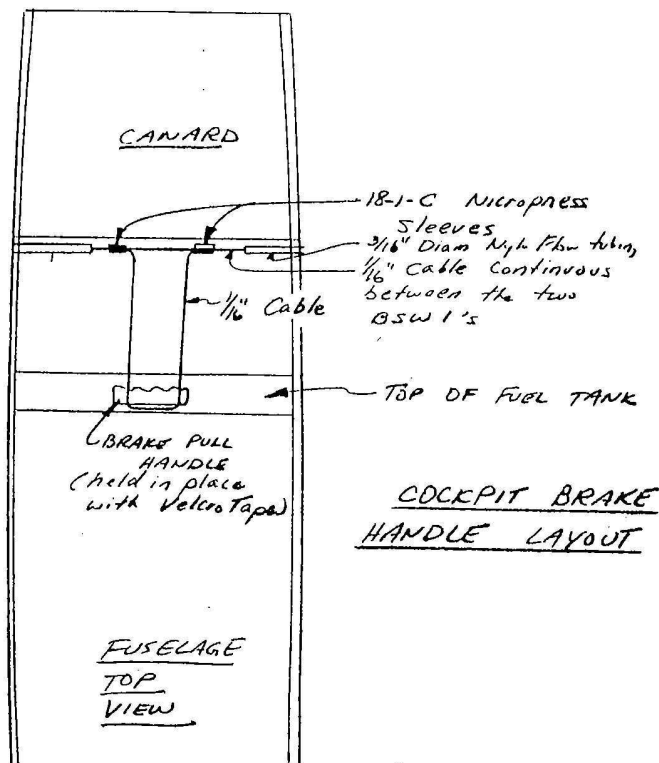 CANARD
18-1-C Nicropress
Sleeves
3/16" Diam Nylo Flow tubing
1/16" Cable Continuous
between the two
BSW1's
1/16" Cable
TOP OF FUEL TANK
BRAKE PULL
HANDLE
(held in place
with Velcro Tape)
COCKPIT BRAKE
HANDLE LAYOUT
FUSELAGE
TOP
VIEW